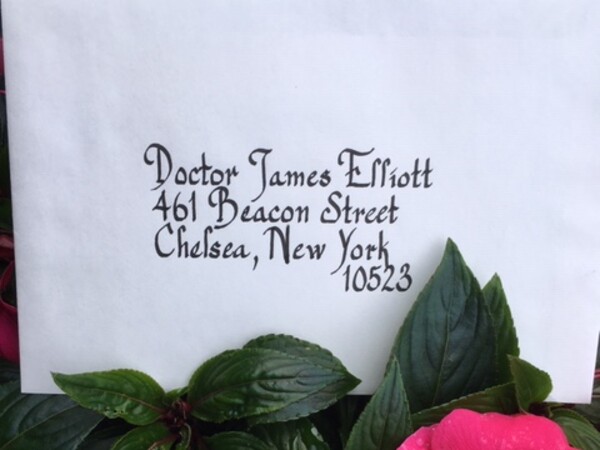 Doctor James Elliott
461 Beacon Street
Chelsea, New York
10523